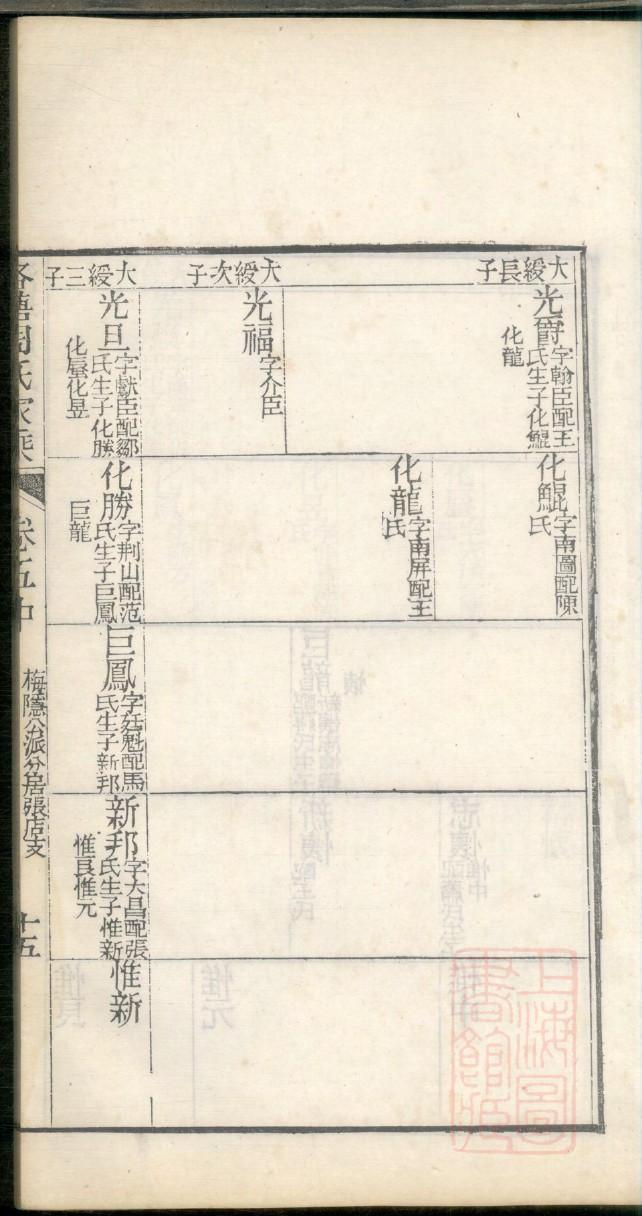 大綬長子
光爵字翰臣配王
氏生子化鯤
化龍
化鯤字南圖配陳
氏
化龍字南屏配王
氏
大綬次子
光福字介臣
大綬三子
光旦字獻臣配鄒
氏生子化勝
化蜃化昱
化勝字荆山配范
氏生子巨鳳
巨龍
巨鳳字廷魁配馬
氏生子新邦
新邦字大昌配張
氏生子惟新
惟良惟元
惟新
周氏家乘
卷五中
梅隱公派分居張店支
十五
上海圖
書館藏